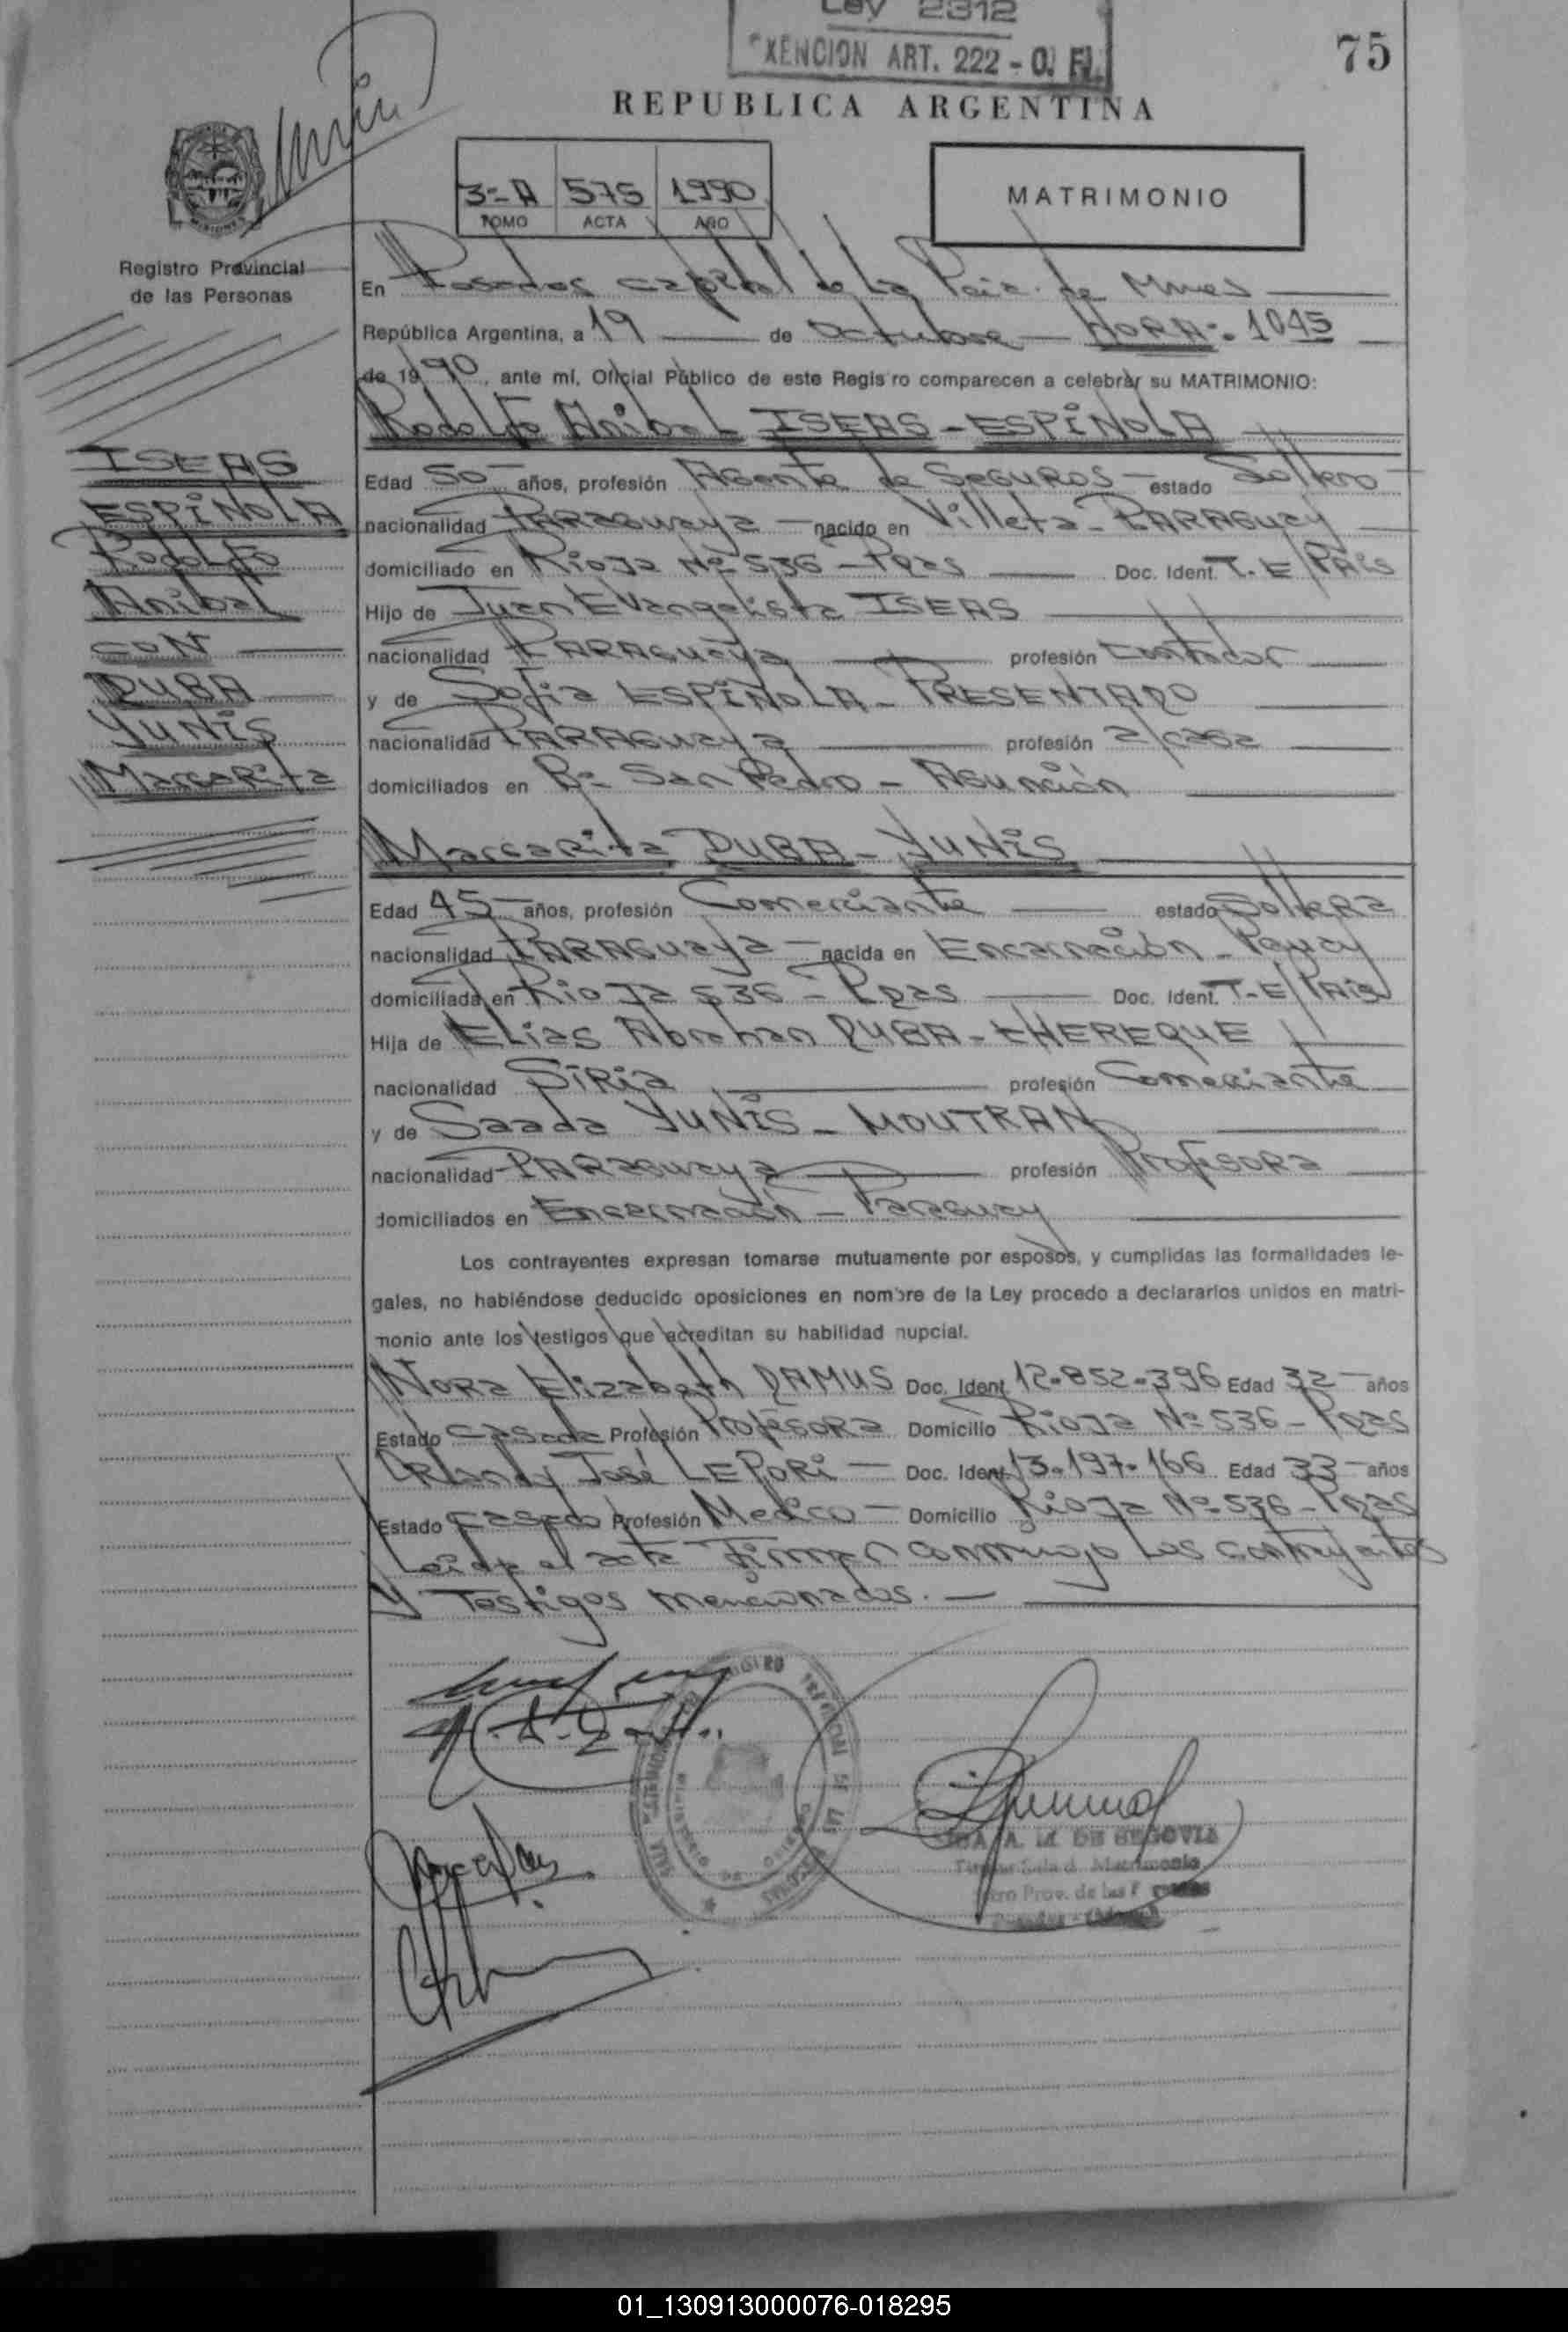 Ley 2312
EXENCION ART. 222 - O. F.
75
REPUBLICA ARGENTINA
3-A 575 1990
TOMO ACTA AÑO
MATRIMONIO
Registro Provincial
de las Personas
En Posadas capital de la Pcia. de Mnes
República Argentina, a 19 de octubre HORA: 1045
de 1990, ante mí, Oficial Público de este Regis ro comparecen a celebrar su MATRIMONIO:
Rodolfo Anibal ISEAS - ESPINOLA
ISEAS
ESPINOLA
Rodolfo
Anibal
CON
DUBA
YUNIS
Margarita
Edad 50 años, profesión Agente de Seguros estado Soltero
nacionalidad Paraguaya nacido en Villeta - Paraguay
domiciliado en Rioja Nº 536 - Pdas Doc. Ident. T. E/Pais
Hijo de Juan Evangelista ISEAS
nacionalidad Paraguaya profesión Contador
y de Sofia ESPINOLA - PRESENTADO
nacionalidad Paraguaya profesión a/casa
domiciliados en Bº San Pedro - Asunción
Margarita DUBA - YUNIS
Edad 45 años, profesión Comerciante estado Soltera
nacionalidad Paraguaya nacida en Encarnación - Pguay
domiciliada en Rioja 536 - Pdas Doc. Ident. T-E/Pais
Hija de Elias Abrahan DUBA - CHEREQUE
nacionalidad Siria profesión Comerciante
y de Saada YUNIS - MOUTRAN
nacionalidad Paraguaya profesión Profesora
domiciliados en Encarnación - Paraguay
Los contrayentes expresan tomarse mutuamente por esposos, y cumplidas las formalidades le-
gales, no habiéndose deducido oposiciones en nombre de la Ley procedo a declararlos unidos en matri-
monio ante los testigos que acreditan su habilidad nupcial.
Nora Elizabeth DAMUS Doc. Ident. 12.852.396 Edad 32 años
Estado Casada Profesión Profesora Domicilio Rioja Nº 536 - Pdas
Orlando José LEPORI Doc. Ident. 13.197.166 Edad 33 años
Estado Casado Profesión Medico Domicilio Rioja Nº 536 - Pdas
Leida el acta firman conmigo los contrayentes
y testigos mencionados.
A. M. DE SEGOVIA
Matrimonio
Prov. de las
01_130913000076-018295